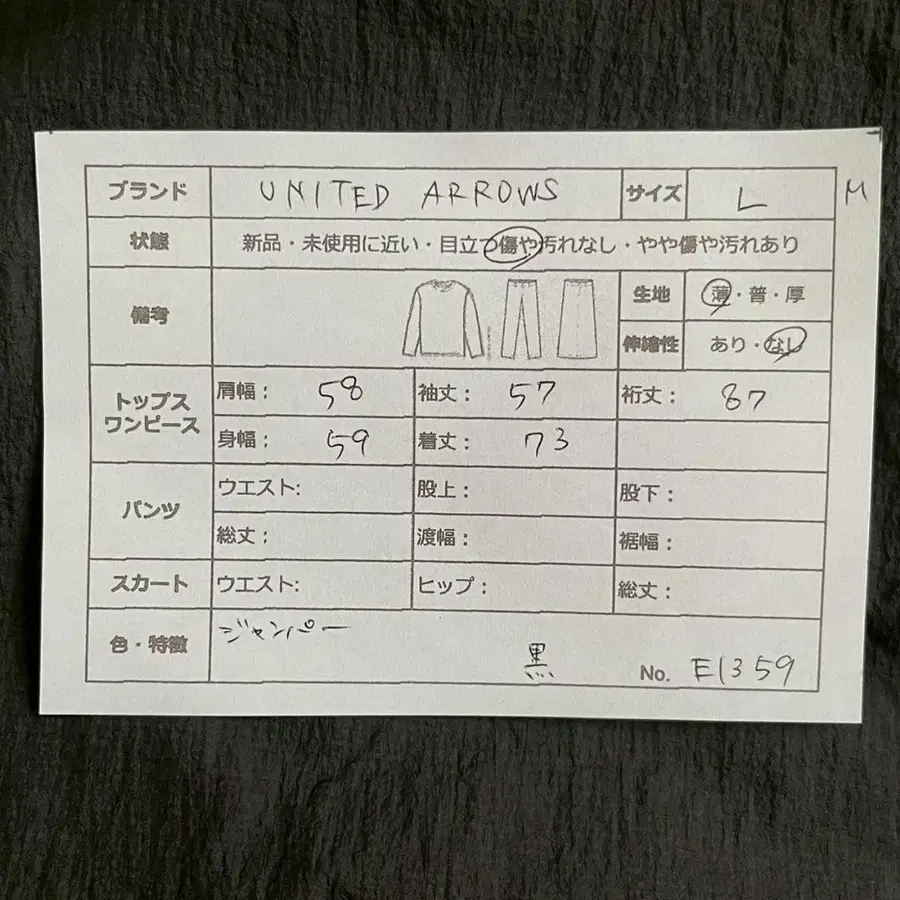 ブランド UNITED ARROWS サイズ L M
状態 新品・未使用に近い・目立つ傷や汚れなし・やや傷や汚れあり
備考 生地 薄・普・厚
伸縮性 あり・なし
トップス ワンピース
肩幅: 58 袖丈: 57 裄丈: 87
身幅: 59 着丈: 73
パンツ
ウエスト: 股上: 股下:
総丈: 渡幅: 裾幅:
スカート ウエスト: ヒップ: 総丈:
色・特徴 ジャンパー
黒 No. E1359